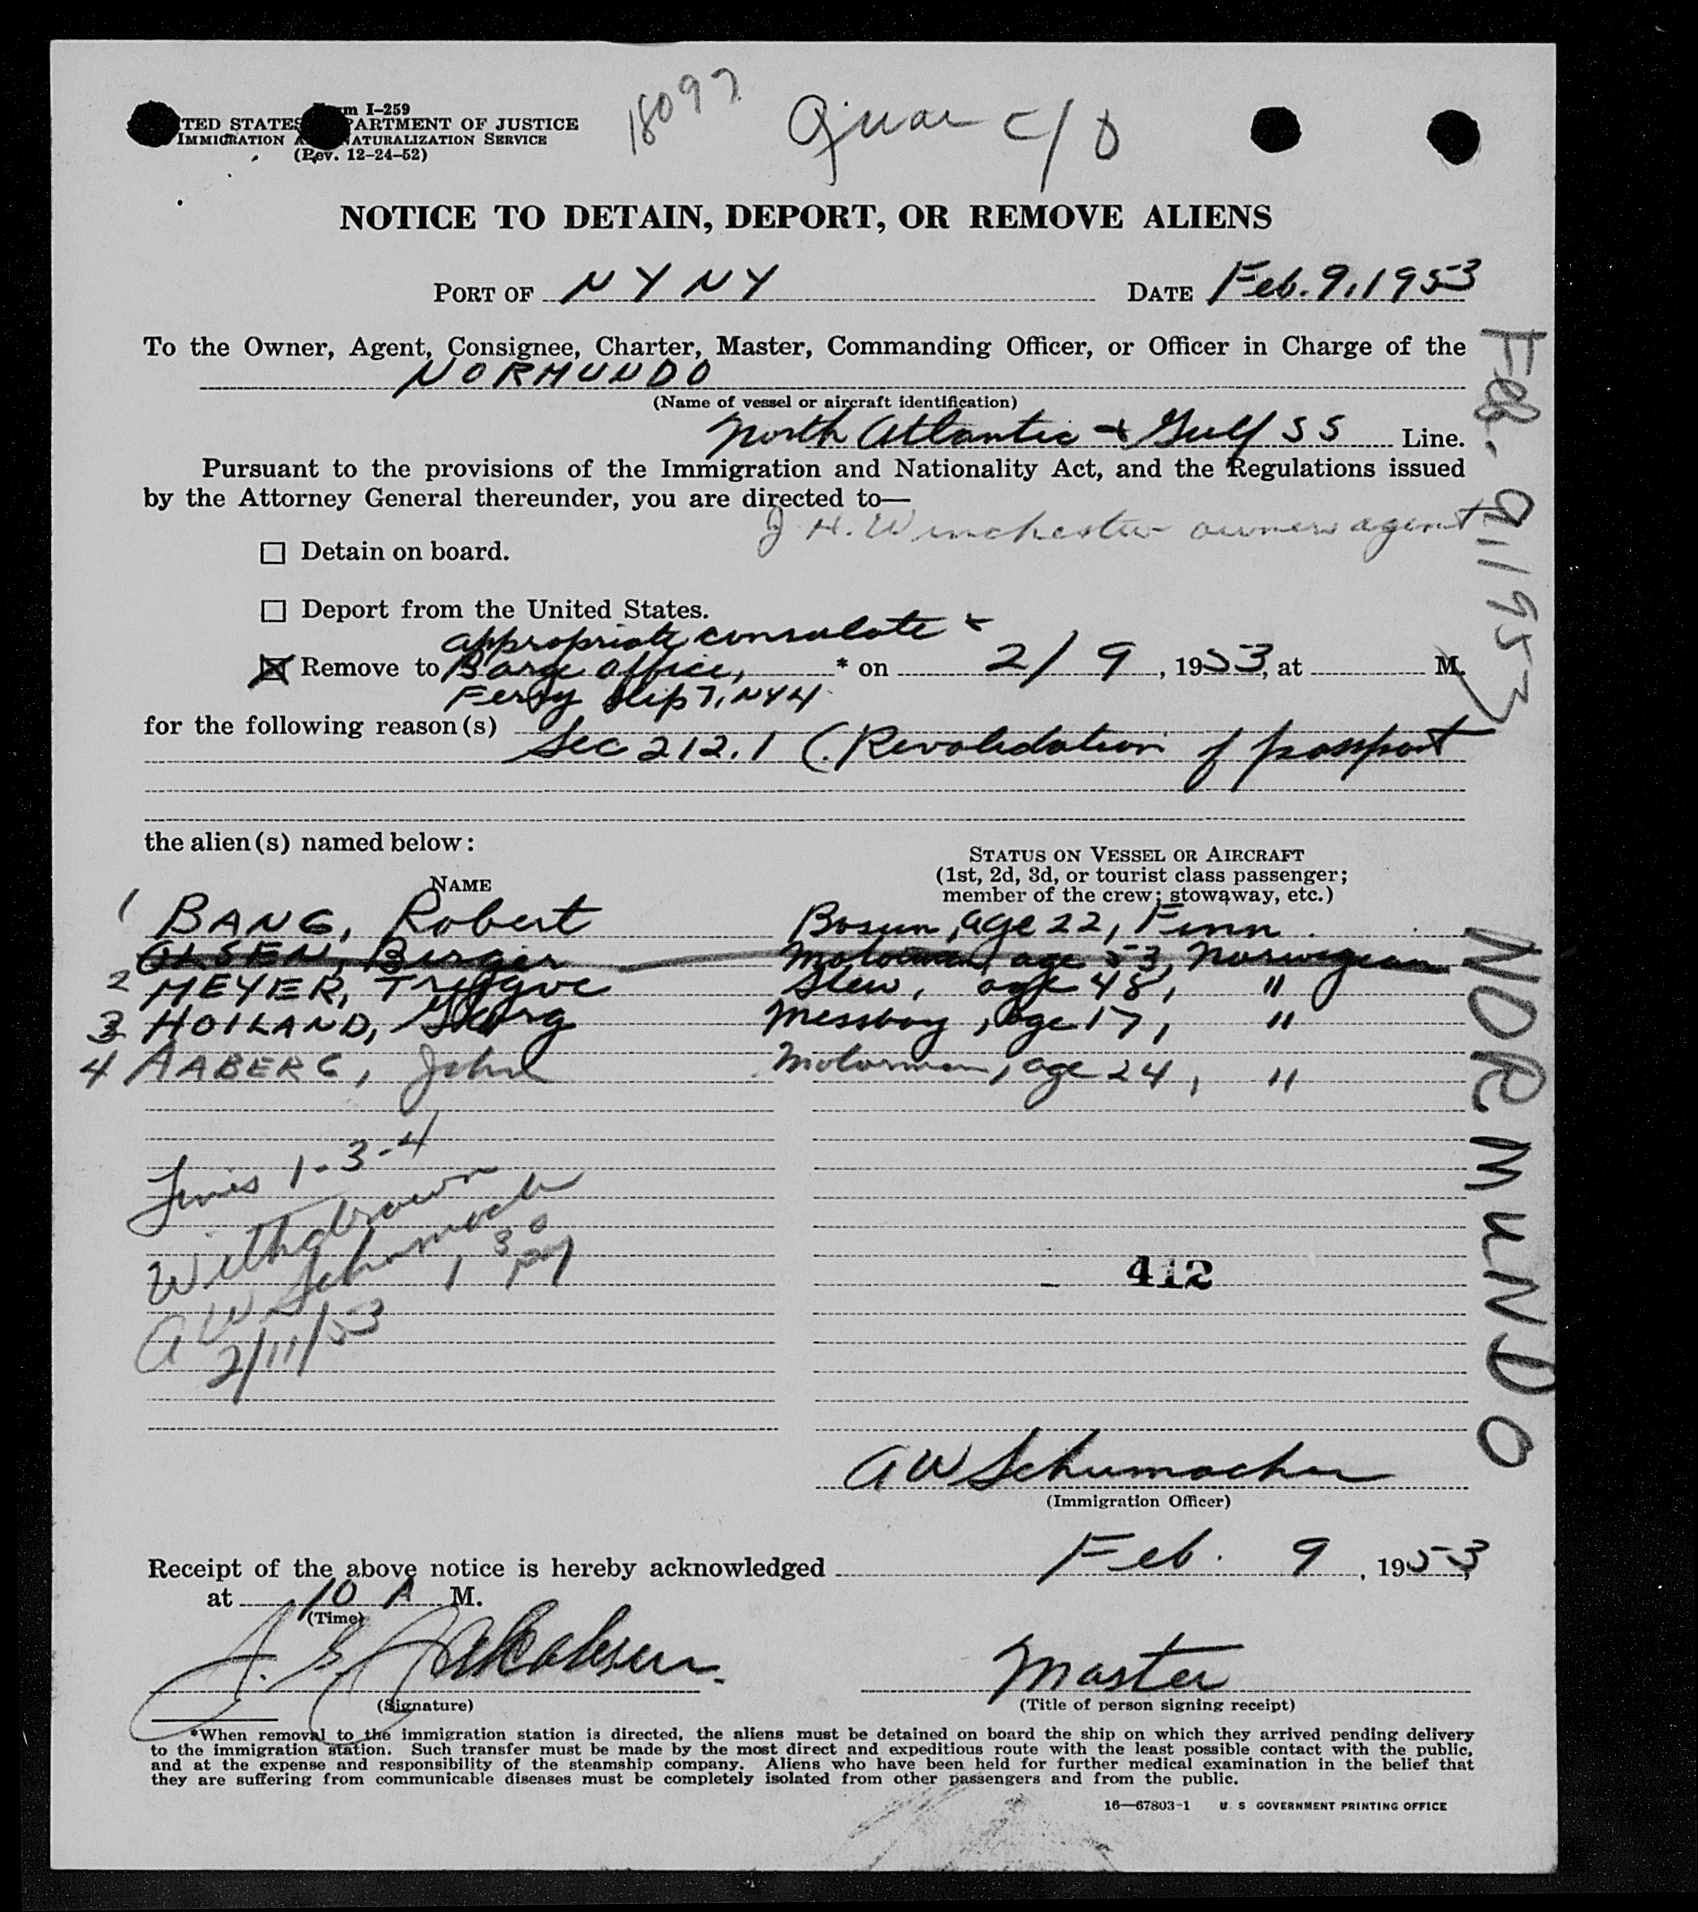 18097
Quar c/o
Form I-259
UNITED STATES DEPARTMENT OF JUSTICE
IMMIGRATION AND NATURALIZATION SERVICE
(Rev. 12-24-52)
NOTICE TO DETAIN, DEPORT, OR REMOVE ALIENS
PORT OF NY NY DATE Feb. 9, 1953
To the Owner, Agent, Consignee, Charter, Master, Commanding Officer, or Officer in Charge of the
NORMUNDO
(Name of vessel or aircraft identification)
North Atlantic & Gulf SS Line.
Pursuant to the provisions of the Immigration and Nationality Act, and the Regulations issued
by the Attorney General thereunder, you are directed to—
J. H. Winchester owners agent
Detain on board.
Deport from the United States.
appropriate consulate &
Remove to Barge office, * on 2/9, 1953, at M.
Ferry Slip 7, NY4
for the following reason(s)
Sec 212.1 (Revalidation of passport
the alien(s) named below:
STATUS ON VESSEL OR AIRCRAFT
(1st, 2d, 3d, or tourist class passenger;
member of the crew; stowaway, etc.)
NAME
1 BANG, Robert Bosun, age 22, Finn.
OLSEN, Birger Motorman, age 53, Norwegian
2 MEYER, Trygve Stew, age 48, "
3 HOILAND, Georg Messboy, age 17, "
4 AABERG, John Motorman, age 24, "
1-3-4
Withdrawn
AW Schumacher
1 30 PM
2/11/53
412
AW Schumacher
(Immigration Officer)
Receipt of the above notice is hereby acknowledged Feb. 9, 1953,
at 10 A M.
(Time)
Master
(Signature) (Title of person signing receipt)
*When removal to the immigration station is directed, the aliens must be detained on board the ship on which they arrived pending delivery
to the immigration station. Such transfer must be made by the most direct and expeditious route with the least possible contact with the public,
and at the expense and responsibility of the steamship company. Aliens who have been held for further medical examination in the belief that
they are suffering from communicable diseases must be completely isolated from other passengers and from the public.
16—67803-1 U S GOVERNMENT PRINTING OFFICE
Feb. 9, 1953
NORMUNDO